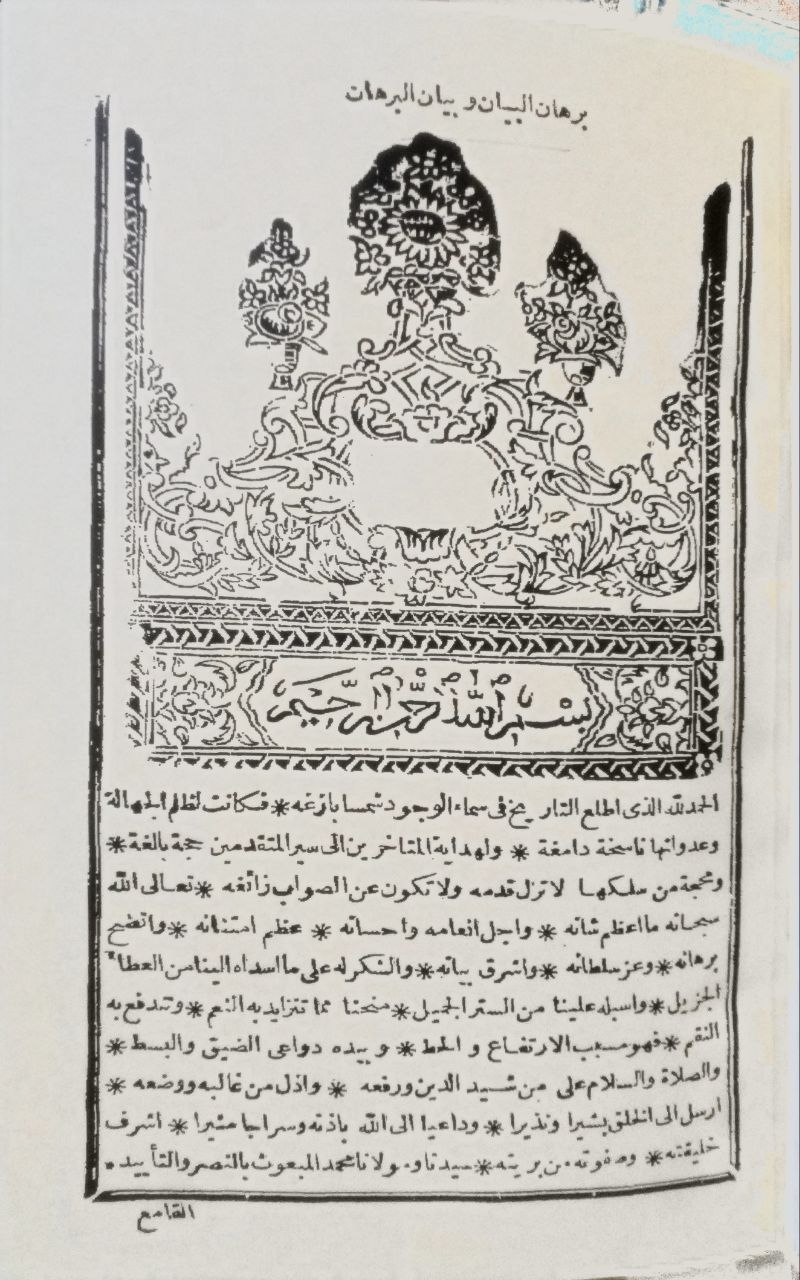 برهان البيان و بيان البرهان
بسم الله الرحمن الرحيم
الحمد لله الذى اطلع التاريخ فى سماء الوجود شمسا بازغه * فكانت لظلم الجهالة
وعدوانها ناسخة دامغة * ولهداية المتاخرين الى سير المتقدمين حجة بالغة *
ومحجة من سلكها لا تزل قدمه ولا تكون عن الصواب زائغه * تعالى الله
سبحانه ما اعظم شانه * واجل انعامه واحسانه * عظم امتنانه * واتضح
برهانه * وعز سلطانه * واشرق بيانه * والشكر له على ما اسداه الينا من العطاء
الجزيل * واسبله علينا من الستر الجميل * منحنا مما تتزايد به النعم * وتندفع به
النقم * فهو مسبب الارتفاع و الحط * و بيده دواعى الضيق والبسط *
والصلاة والسلام على من شيد الدين ورفعه * واذل من غالبه ووضعه *
ارسل الى الخلق بشيرا ونذيرا * وداعيا الى الله باذنه وسراجا منيرا * اشرف
خليقته * وصفوته من بريته * سيدنا ومولانا محمد المبعوث بالنصر والتأييد *
القامع